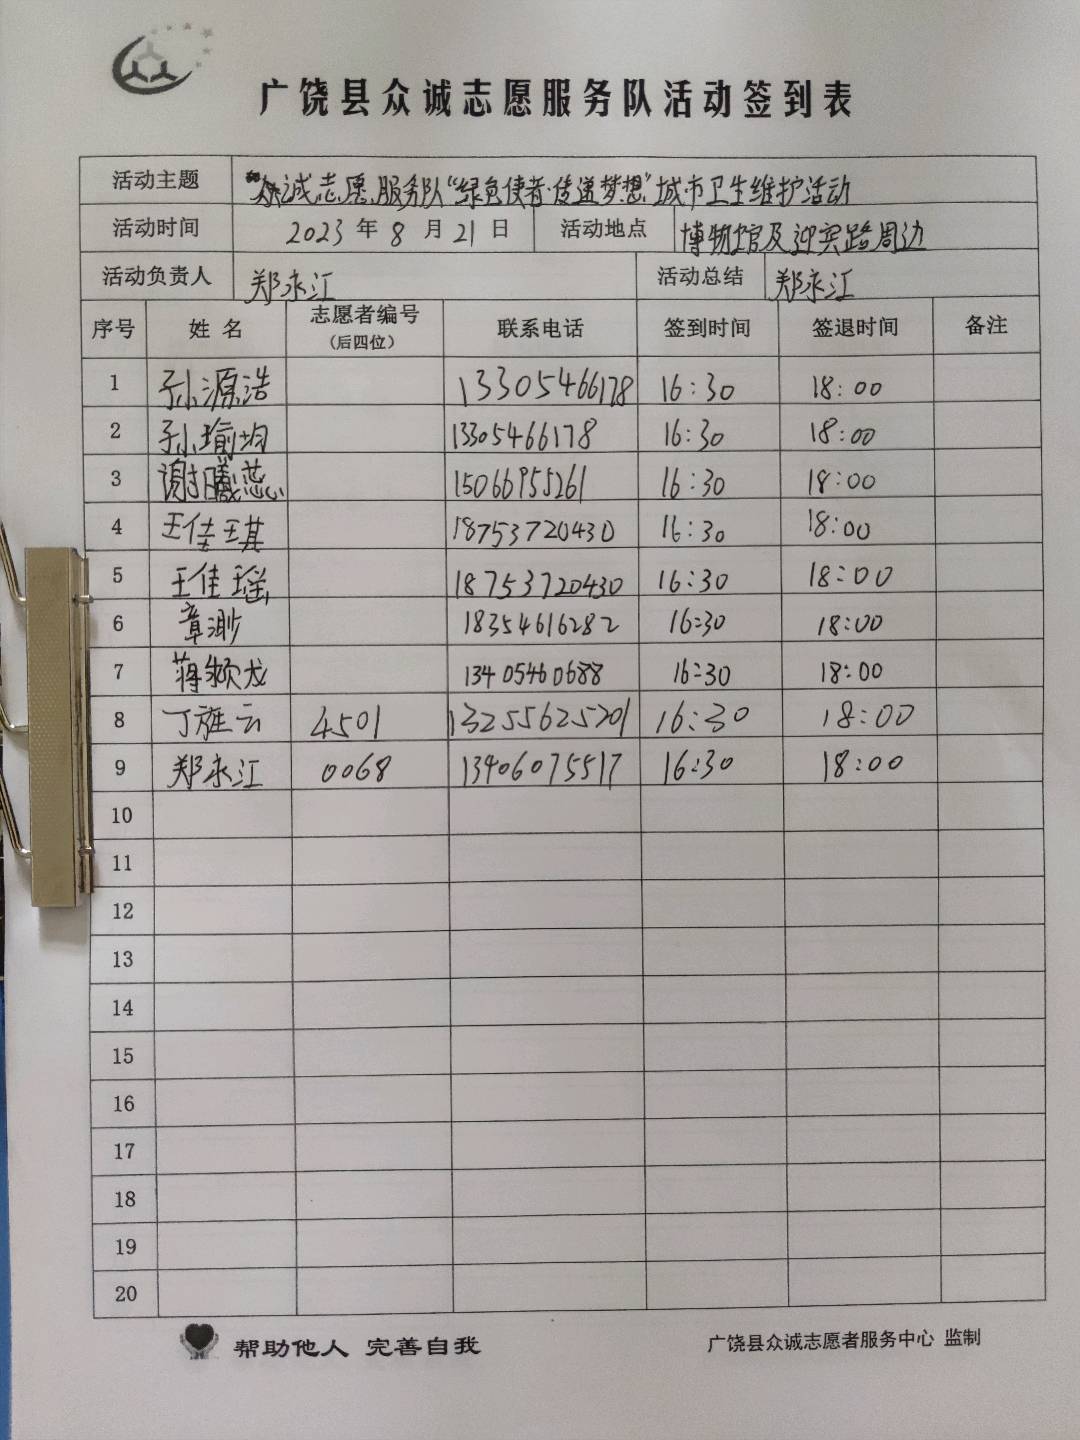 广饶县众诚志愿服务队活动签到表
活动主题 众诚志愿服务队“绿色使者·传递梦想”城市卫生维护活动
活动时间 2023 年 8 月 21 日 活动地点 博物馆及迎宾路周边
活动负责人 郑永江 活动总结 郑永江
序号 姓名 志愿者编号 (后四位) 联系电话 签到时间 签退时间 备注
1 孙源浩 13305466178 16:30 18:00
2 孙瑜均 13305466178 16:30 18:00
3 谢曦蕊 15066955261 16:30 18:00
4 王佳琪 18753720430 16:30 18:00
5 王佳瑶 18753720430 16:30 18:00
6 章渺 18354616282 16:30 18:00
7 蒋频龙 13405460688 16:30 18:00
8 丁旌云 4501 13255625201 16:30 18:00
9 郑永江 0068 13406075517 16:30 18:00
10
11
12
13
14
15
16
17
18
19
20
帮助他人 完善自我 广饶县众诚志愿者服务中心 监制